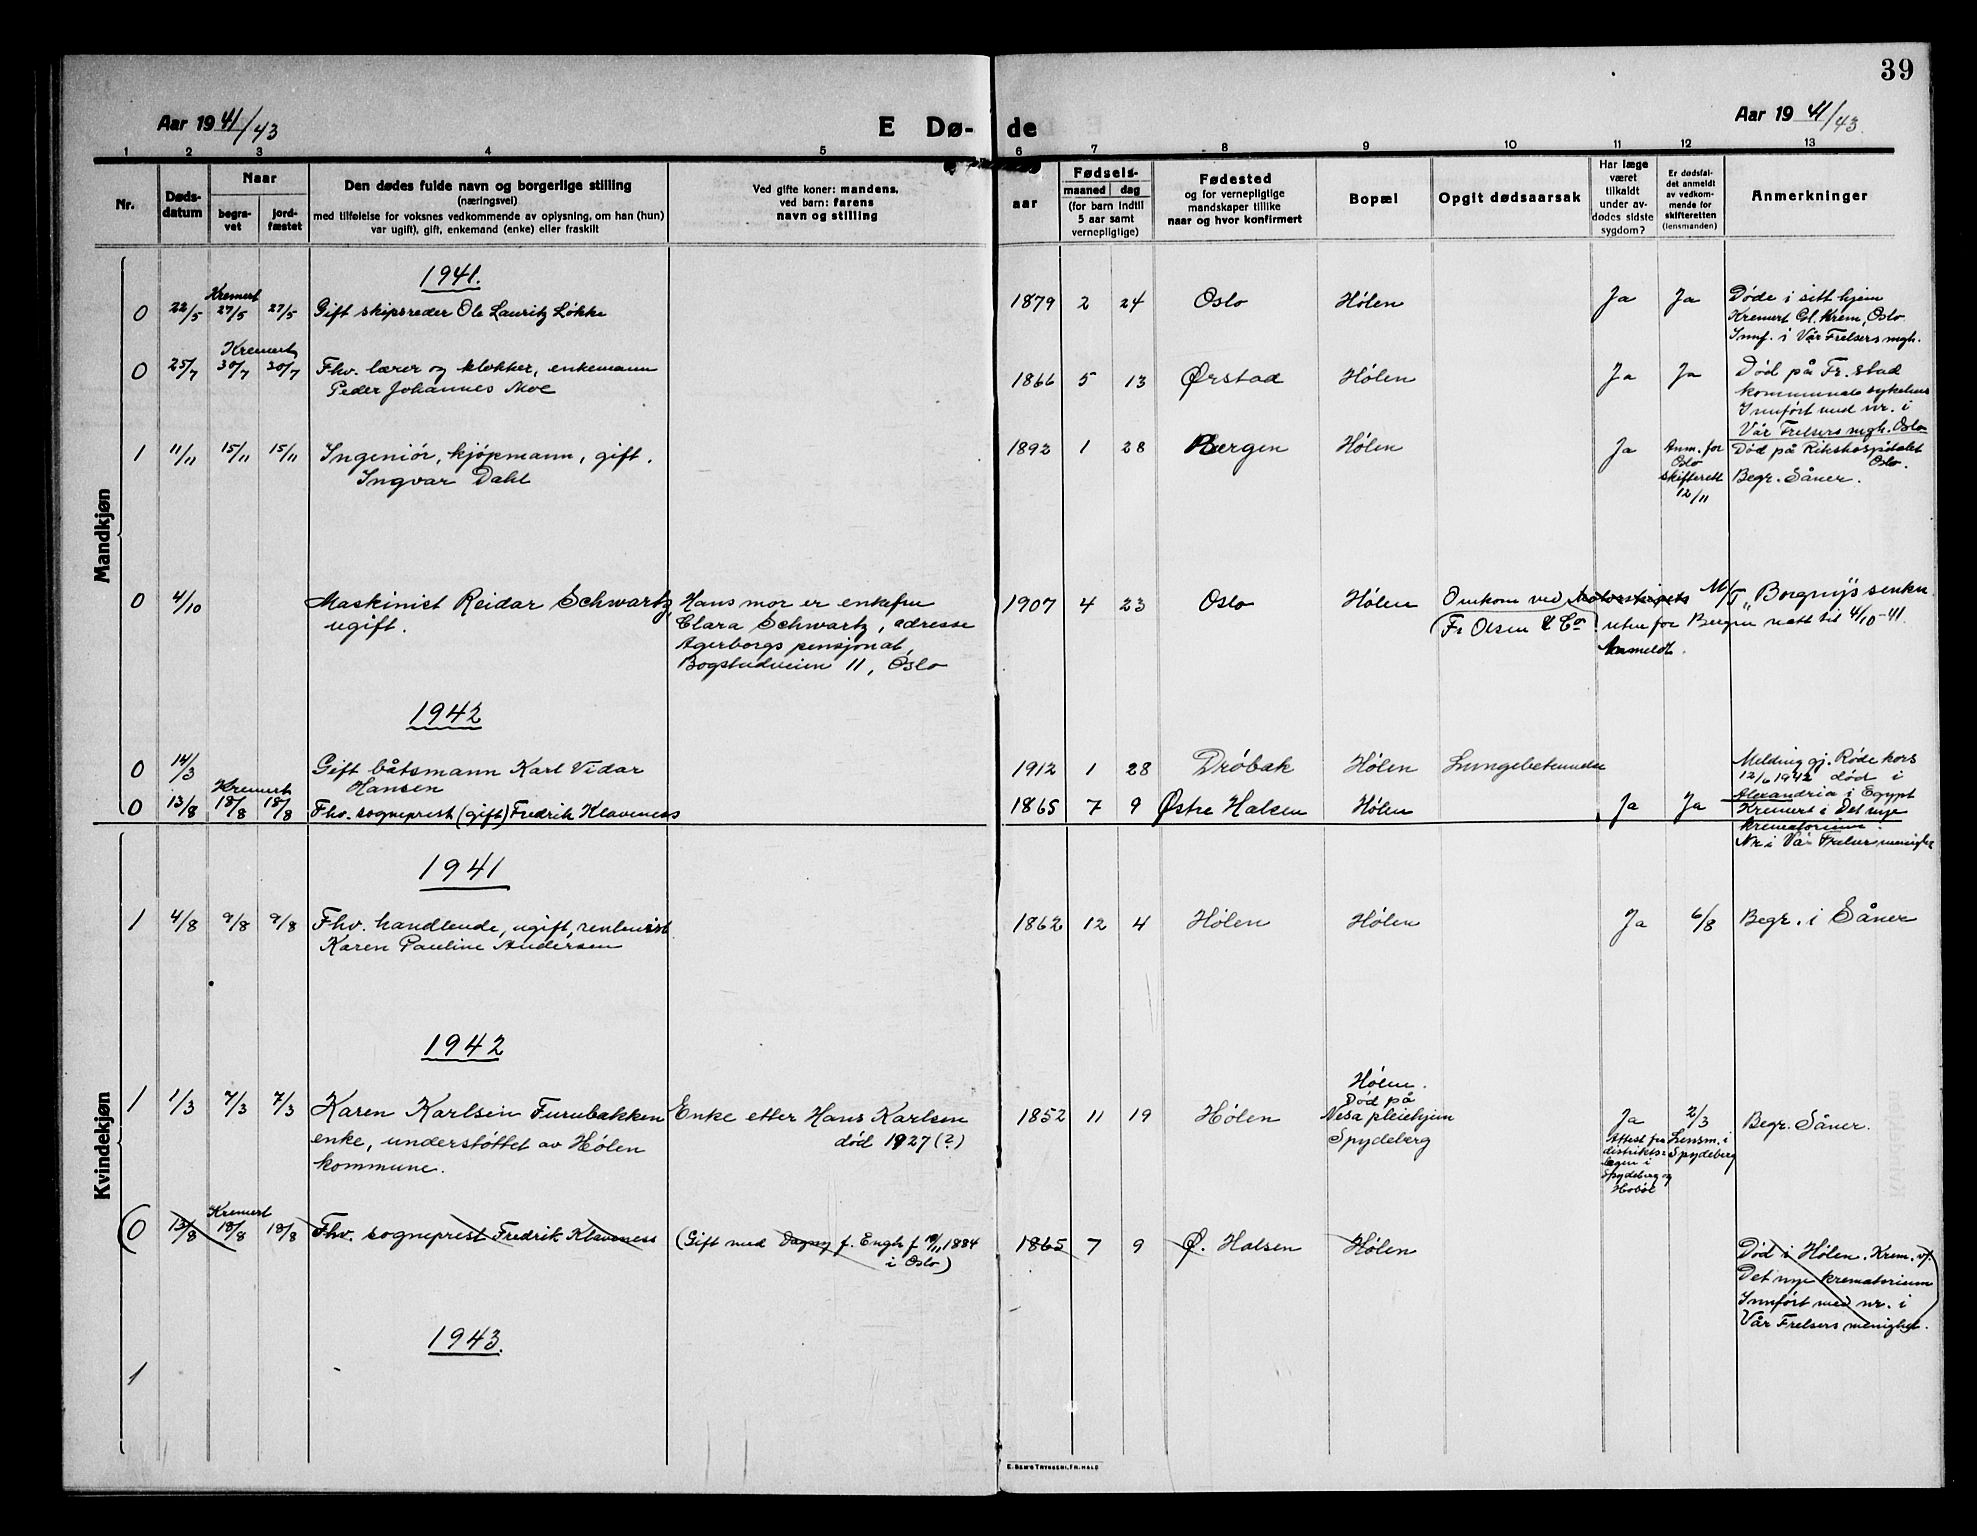 39
Aar 1941/43
E Dø-
de
Aar 1941/43.
1 2 3 4 5 6 7 8 9 10 11 12 13
Nr.
Døds-
datum
Naar
begra-
vet
jord-
fæstet
Den dødes fulde navn og borgerlige stilling
(næringsvei)
med tilføielse for voksnes vedkommende av oplysning, om han (hun)
var ugift), gift, enkemand (enke) eller fraskilt
Ved gifte koner: mandens,
ved barn: farens
navn og stilling
Fødsels-
aar
maaned
dag
(for barn indtil
5 aar samt
vernepligtige)
Fødested
og for vernepligtige
mandskaper tillike
naar og hvor konfirmert
Bopæl
Opgit dødsaarsak
Har læge
været
tilkaldt
under av-
dødes sidste
sygdom?
Er dødsfal-
det anmeldt
av vedkom-
mende for
skifteretten
(lensmanden)
Anmerkninger
Mandkjøn
1941.
Kremert
0 22/5 27/5 27/5 Gift skipsreder Ole Lauritz Løkke 1879 2 24 Oslo Hølen Ja Ja Døde i sitt hjem
Kremert Gl. Krem, Oslo
Innf. i Vår Frelsers mgh.
Kremert
0 25/7 30/7 30/7 Fhv. lærer og klokker, enkemann
Peder Johannes Moe
1866 5 13 Ørstad Hølen Ja Ja Død på Fr.stad
kommunale sykehus
Innført med nr. i
Vår Frelsers mgh. Oslo
1 11/11 15/11 15/11 Ingeniør, kjøpmann, gift.
Ingvar Dahl
1892 1 28 Bergen Hølen Ja Anm. for
Oslo
skifterett
12/11
Død på Rikshospitalet
Oslo.
Begr. Såner.
0 4/10 Maskinist Reidar Schwartz,
ugift.
Hans mor er enkefru
Clara Schwartz, adresse
Agerborgs pensjonat,
Bogstadveien 11, Oslo
1907 4 23 Oslo Hølen Omkom ved Motorskipets M/T "Borgny's senkn.
(Fr Olsen & Co) utenfor Bergen natt til 4/10-41.
Anmeldt.
1942
0 14/3 Gift båtsmann Karl Vidar
Hansen
1912 1 28 Drøbak Hølen Lungebetennelse Melding gj. Røde kors
12/6 1942 død i
Alexandria i Egypt
Kremert
0 13/8 18/8 18/8 Fhv. sogneprest (gift) Fredrik Klaveness 1865 7 9 Østre Halsen Hølen Ja Ja Kremert i Det nye
krematorium.
Nr i Vår Frelser menighet
Kvindekjøn
1941
1 4/8 9/8 9/8 Fhv. handlende, ugift, rentenist
Karen Pauline Andersen
1862 12 4 Hølen Hølen Ja 6/8 Begr. i Såner
1942
1 1/3 7/3 7/3 Karen Karlsen Furubakken
enke, understøttet av Hølen
kommune.
Enke etter Hans Karlsen
død 1927 (?)
1852 11 19 Hølen Hølen.
Død på
Nesa pleiehjem
Spydeberg
Ja
Attest fra
distrikts-
legen i
Spydeberg og
Hobøl
2/3
Lensm. i
Spydeberg
Begr. Såner.
Kremert
(0 13/8 18/8 18/8 Fhv. sogneprest Fredrik Klaveness (Gift med Dagny f. Engh f 19/11 1884
i Oslo)
1865 7 9 Ø. Halsen Hølen Død i Hølen. Krem. v/
Det nye krematorium
Innført med nr. i
Vår Frelsers menighet.
1943.
1
E. SEM'S TRYKKERI, FR.HALD